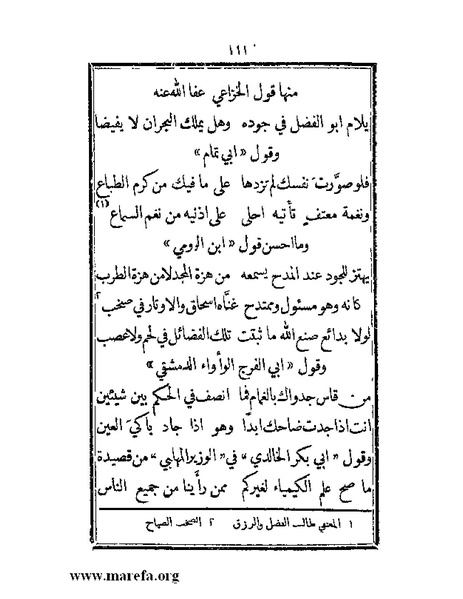 ١١١
منها قول الخزاعي عفا الله عنه
يلام ابو الفضل في جوده وهل يملك البحران لا يفيضا
وقول « ابي تمام »
فلو صوَّرت نفسك لم تزدها على ما فيك من كرم الطباع
ونغمة معتفٍ تأتيه احلى على اذنيه من نغم السماع (١)
وما احسن قول « ابن الرومي »
يهتز للجود عند المدح يسمعه من هزة المجد لا من هزة الطرب
كانه وهو مسئول وممتدح غنَّاه اسحاق والاوتار في صخب ٢
لولا بدائع صنع الله ما ثبتت تلك الفضائل في لحم ولا عصب
وقول « ابي الفرج الوأواء الدمشقي »
من قاس جدواك بالغمام فما انصف في الحكم بين شيئين
انت اذا جدت ضاحك ابدًا وهو اذا جاد باكي العين
وقول « ابي بكر الخالدي » في « الوزير المهلبي » من قصيدة
ما صح علم الكيمياء لغيركم ممن رأينا من جميع الناس
١ المعتفي طالب الفضل والرزق ٢ الصخب الصياح
www.marefa.org